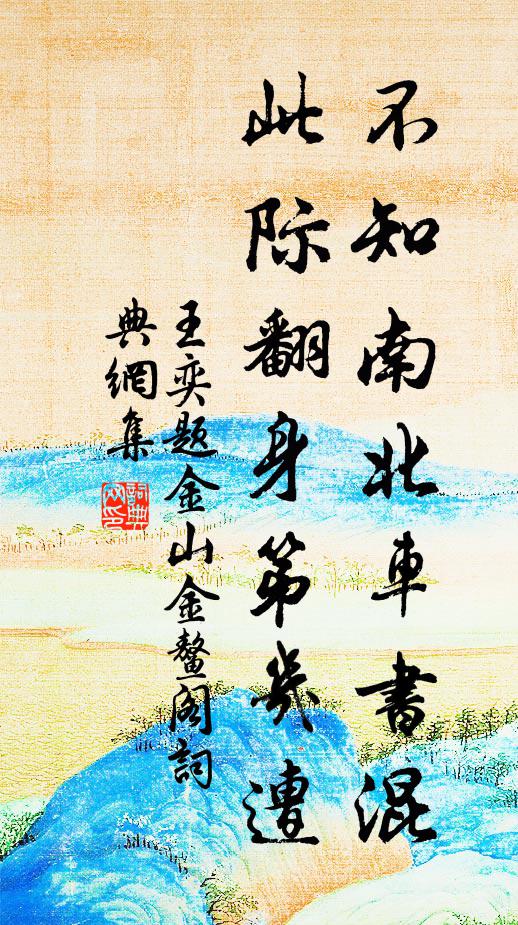 不知南北車書混
此际翻身第幾遭
王奕題金山金鰲閣詞
典網集
詞典網印